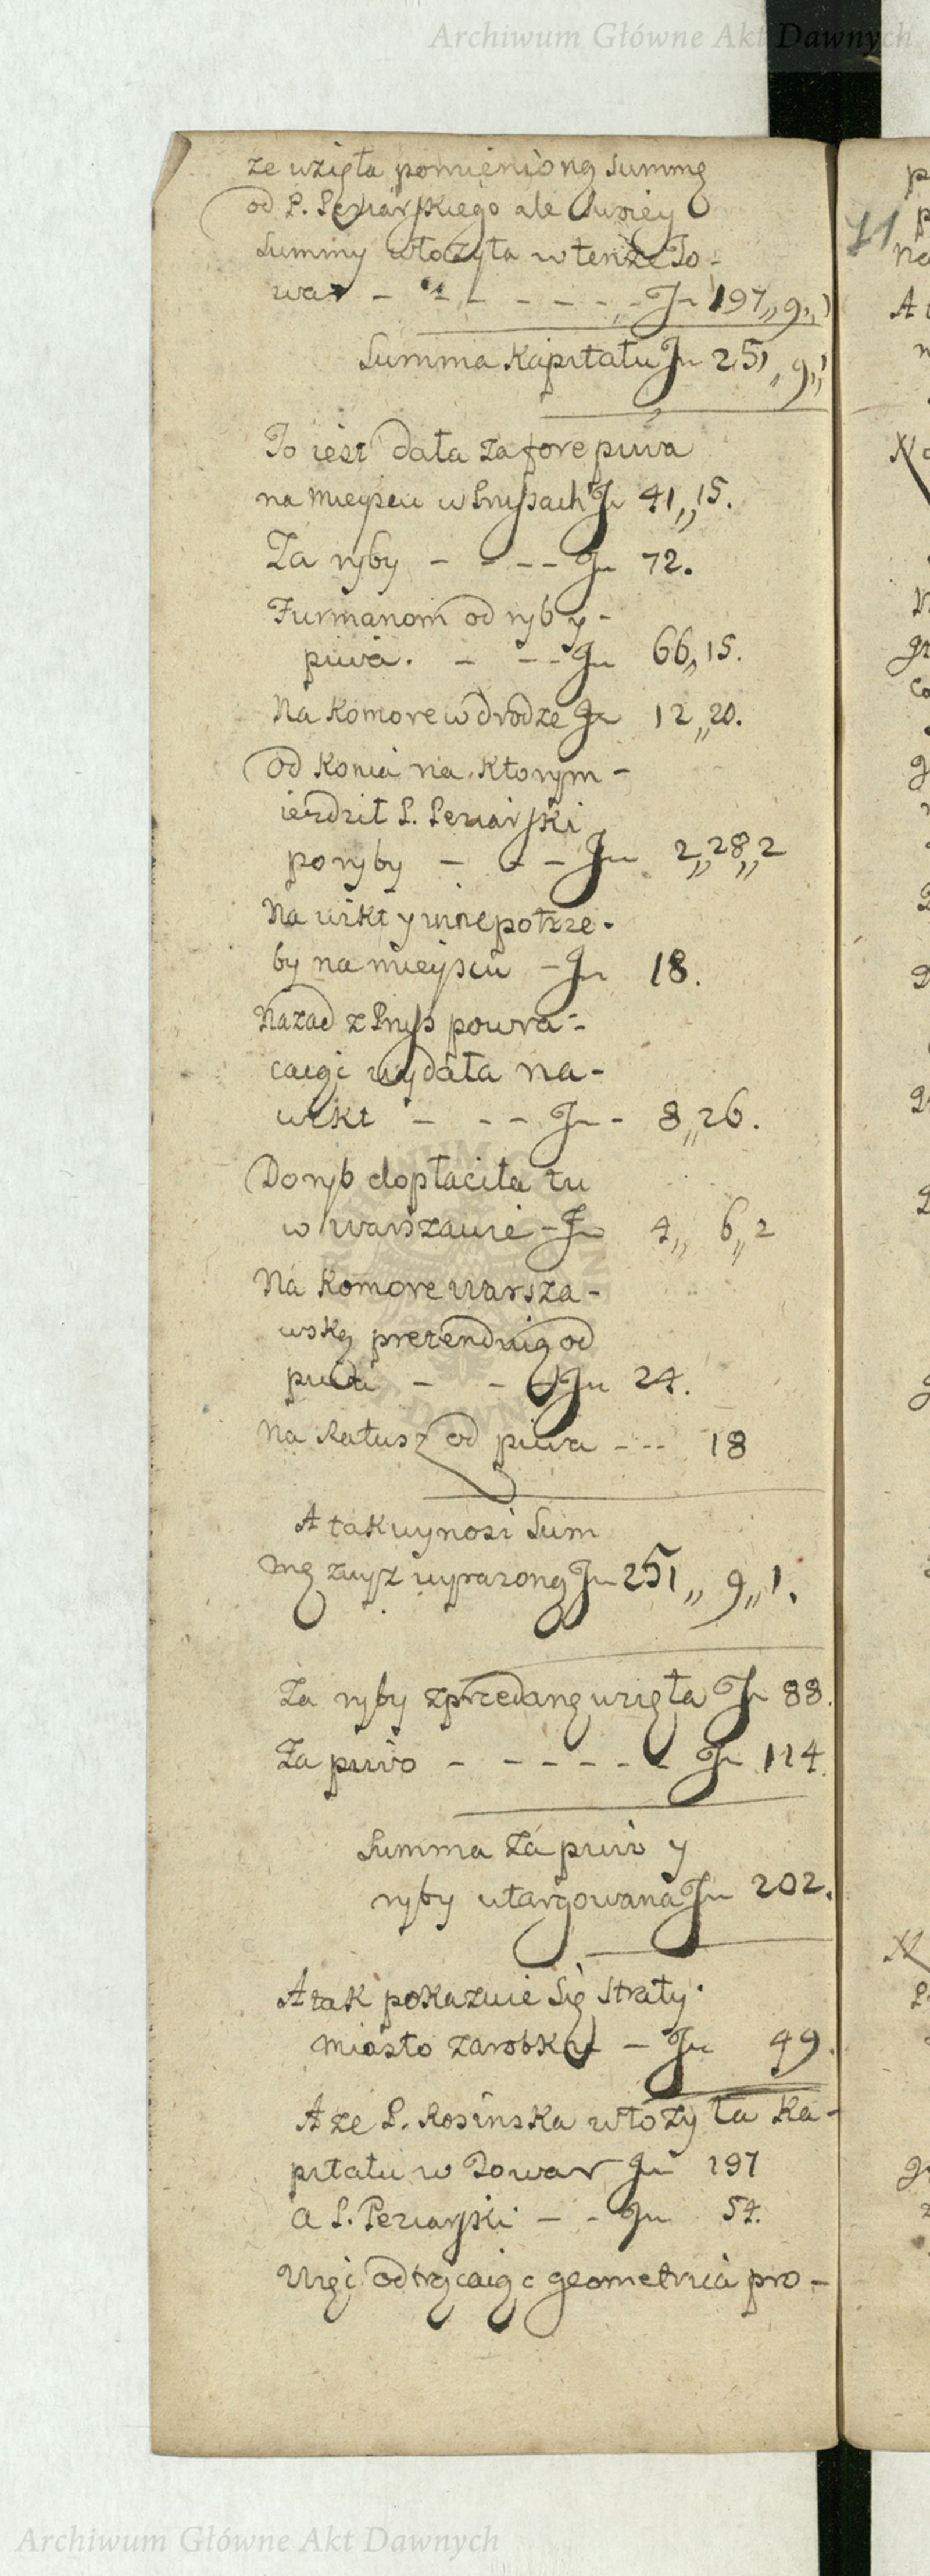 Archiwum Główne Akt Dawnych
ze wzięła pomienioną summę
od P. Peziarskiego ale swoiey
summy włożyła w tenże To-
war - - - - - - - 197,, 9,, 1
Summa Kapitału 251,, 9,, 1
To iest dała za fore piwa
na mieyscu w Prusach 41,, 15.
Za ryby - - - - 72.
Furmanom od ryb y -
piwa. - - - 66,, 15.
Na Komore w drodze 12,, 20.
od Konia na Ktorym -
iezdził P. Peziarski
po ryby - - - 2,, 28,, 2
Na wikt y inne potrze-
by na mieyscu - 18.
Nazad z Prus powra-
caiąc wydała na-
wikt - - - - 8,, 26.
Do ryb dopłaciła tu
w Warszawie - 4,, 6,, 2
Na Komore warsza-
wską pretenduią od
piwa - - - 24.
Na Ratusz od piwa - - - 18
A tak wynosi Sum
mę zwyż wyrazoną 251,, 9,, 1.
Za ryby zprzedane wzięła 88.
Za piwo - - - - - - 114.
Summa za piwo y
ryby utargowana 202.
A tak pokazuie się straty
miasto zarobku - 49.
A ze P. Rosinska włozyła Ka-
pitału w Towar 197
a P. Peziarski - - 54.
Więc odtrącaiąc geometrica pro-
71
Archiwum Główne Akt Dawnych